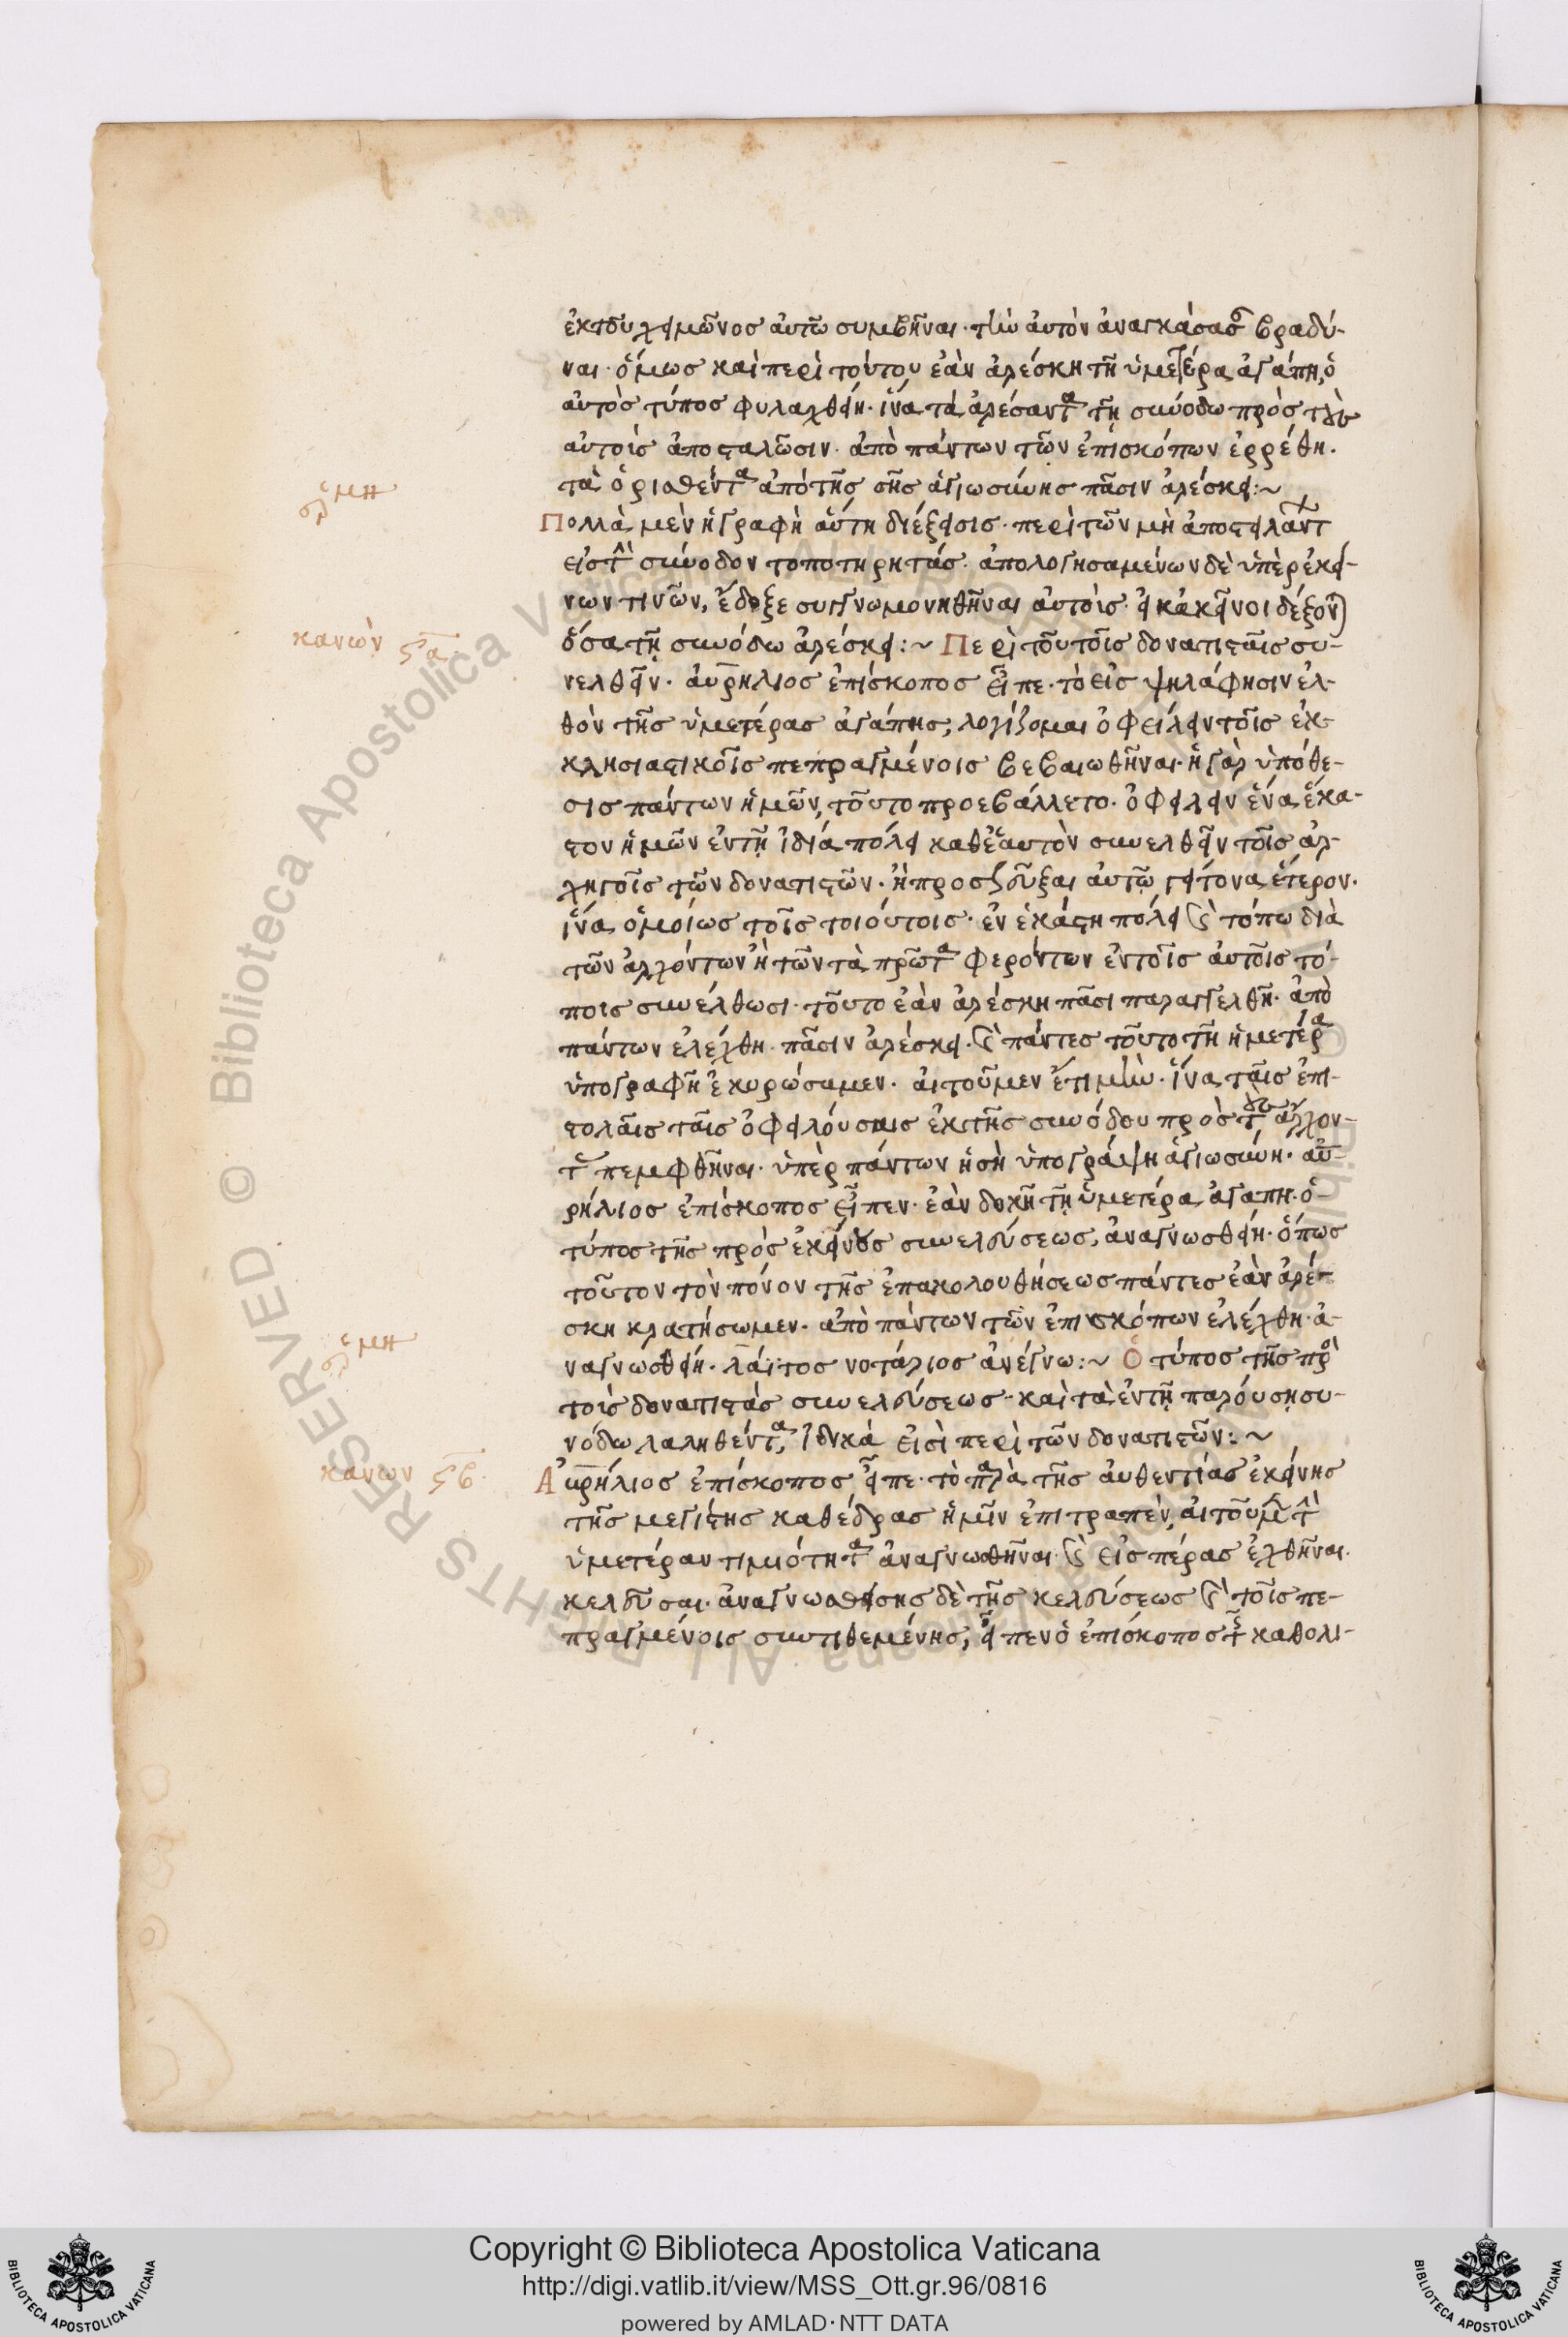 ἐκ τοῦ χειμῶνος αὐτῶ συμβῆναι· τὴν αὐτὸν ἀναγκάσασαν βραδύ-
ναι· ὅμως καὶ περὶ τούτου ἐὰν ἀρέσκη τῆ ὑμετέρα ἀγάπη, ὁ
αὐτὸς τύπος φυλαχθείη· ἵνα τὰ ἀρέσαντα τῆ συνόδω πρὸς τοὺς
αὐτοὺς ἀποσταλῶσιν· ἀπὸ πάντων τῶν ἐπισκόπων ἐρρέθη·
τὰ ὁρισθέντα ἀπὸ τῆς σῆς ἁγιωσύνης πᾶσιν ἀρέσκει:~
σχο μη
Πολλὰ μὲν ἡ γραφὴ αὕτη διέξεισις· περὶ τῶν μὴ ἀποστειλάντων
εἰς τὴν σύνοδον τοποτηρητάς· ἀπολογησαμένων δὲ ὑπὲρ ἐκεί-
νων τινῶν, ἔδοξε συγγνωμονηθῆναι αὐτοὺς· εἰ κἀκεῖνοι δέξονται
ὅσα τῆ συνόδω ἀρέσκει:~ Περὶ τοῦ τοῖς δονατισταῖς συ-
κανὼν ϛα
νελθεῖν· αὐρήλιος ἐπίσκοπος εἶπε· τὸ εἰς ψηλάφησιν ἐλ-
θὸν τῆς ὑμετέρας ἀγάπης, λογίζομαι ὀφείλειν τοῖς ἐκ-
κλησιαστικοῖς πεπραγμένοις βεβαιωθῆναι· ἡ γὰρ ὑπόθε-
σις πάντων ἡμῶν, τοῦτο προεβάλλετο· ὀφείλειν ἕνα ἕκα-
στον ἡμῶν ἐν τῆ ἰδία πόλει καθ' ἑαυτὸν συνελθεῖν τοῖς ἀρ-
χηγοῖς τῶν δονατιστῶν· ἢ προσζεῦξαι αὐτῶ γείτονα ἕτερον·
ἵνα ὁμοίως τοῖς τοιούτοις· ἐν ἑκάστη πόλει καὶ τόπω διὰ
τῶν ἀρχόντων ἢ τῶν τὰ πρῶτα φερόντων ἐν τοῖς αὐτοῖς τό-
ποις συνέλθωσι· τοῦτο ἐὰν ἀρέσκη πᾶσι παραγγελθῆ· ἀπὸ
πάντων ἐλέχθη· πᾶσιν ἀρέσκει· καὶ πάντες τοῦτο τῆ ἡμετέρα
ὑπογραφῆ ἐκυρώσαμεν· αἰτοῦμεν ἔτι μὴν· ἵνα ταῖς ἐπι-
στολαῖς ταῖς ὀφειλούσαις ἐκ τῆς συνόδου πρὸς τοὺς ἄρχον-
τας πεμφθῆναι· ὑπὲρ πάντων ἡ σὴ ὑπογράψη ἁγιωσύνη· αὐ-
ρήλιος ἐπίσκοπος εἶπεν· ἐὰν δοκῆ τῆ ὑμετέρα ἀγάπη· ὁ
τύπος τῆς πρὸς ἐκείνους συνελεύσεως, ἀναγνωσθείη· ὅπως
τοῦτον τὸν πόνον τῆς ἐπακολουθήσεως πάντες ἐὰν ἀρέ-
σκη κρατήσωμεν· ἀπὸ πάντων τῶν ἐπισκόπων ἐλέχθη· ἀ-
ναγνωσθείη· λάϊτος νοτάριος ἀνέγνω:~ Ὁ τύπος τῆς πρὸς
σχο μη
τοὺς δονατιστὰς συνελεύσεως· καὶ τὰ ἐν τῆ παρούση συ-
νόδω λαληθέντα, εἰσὶ περὶ τῶν δονατιστῶν:~
κανων ϛβ·
Αὐρήλιος ἐπίσκοπος εἶπε· τὸ παρὰ τῆς αὐθεντίας ἐκείνης
τῆς μεγίστης καθέδρας ἡμῖν ἐπιτραπὲν, αἰτοῦμεν τὴν
ὑμετέραν τιμιότητα ἀναγνωσθῆναι· καὶ εἰς πέρας ἐλθῆναι·
κελεῦσαι· ἀναγνωσθείσης δὲ τῆς κελεύσεως καὶ τοῖς πε-
πραγμένοις συντιθεμένης, εἶπεν ὁ ἐπίσκοπος τῆς καθολι-
Copyright © Biblioteca Apostolica Vaticana
http://digi.vatlib.it/view/MSS_Ott.gr.96/0816
powered by AMLAD·NTT DATA
BIBLIOTECA APOSTOLICA VATICANA
BIBLIOTECA APOSTOLICA VATICANA